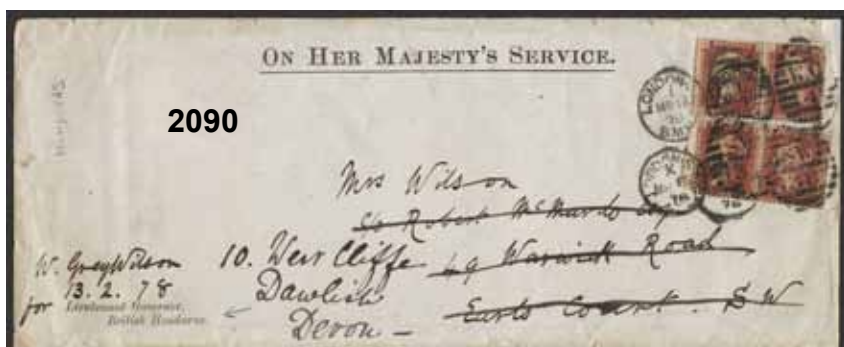 ON HER MAJESTY'S SERVICE.
2090
LONDON
Mrs Wilson
c/o Robert McMurdo Esq
10. West Cliffe
49 Warwick Road
Dawlish
Earls Court. S W
Devon —
W. Grey Wilson
13. 2. 78
for Lieutenant Governor,
British Honduras.